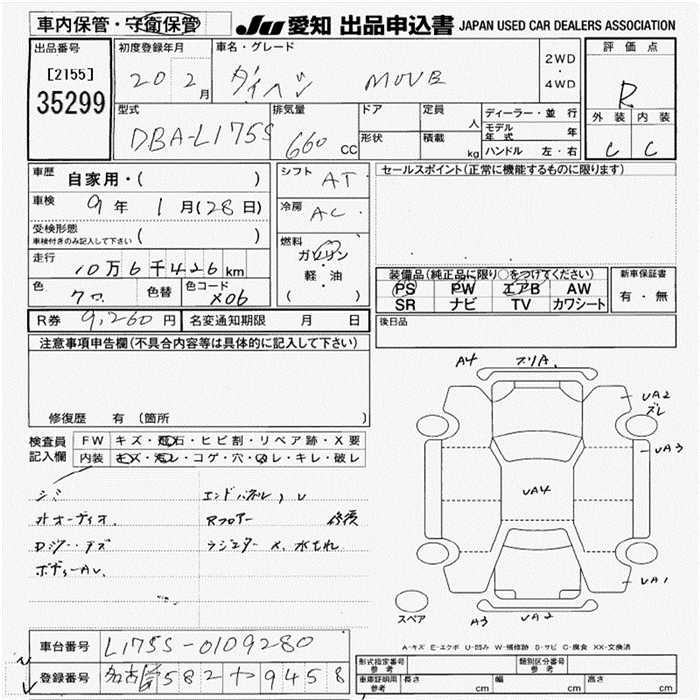 車内保管・守衛保管
JU 愛知 出品申込書 JAPAN USED CAR DEALERS ASSOCIATION
出品番号
[2155]
35299
初度登録年月
20 2月
車名・グレード
ダイハツ MOVE
2WD
・
4WD
評価点
R
外装 内装
C C
型式
DBA-L175S
排気量
660 CC
ドア
形状
定員
人
積載
kg
ディーラー・並行
モデル年式 年
ハンドル 左・右
車歴
自家用・( )
車検
9年 1月(28日)
受検形態
車検付きのみ記入して下さい ( )
走行
10万6千426km
色
クロ
色替
色コード
X06
シフト
AT
冷房
AC
燃料
ガソリン
・
軽・油
( )
セールスポイント(正常に機能するものに限ります)
装備品(純正品に限り○をつけてください)
PS PW エアB AW
SR ナビ TV カワシート
新車保証書
有・無
R券 9,260円
名変通知期限 月 日
後日品
注意事項申告欄(不具合内容等は具体的に記入して下さい)
修復歴 有 (箇所 )
検査員
記入欄
FW キズ・飛石・ヒビ割・リペア跡・X要
内装 キズ・汚レ・コゲ・穴・凹レ・キレ・破レ
オーディオ
ボディーAU
エンドパネル
Rフロアー 修復
ラジエター X. 水もれ
A4
UA2
ズレ
UA3
UA4
UA1
A3
UA2
スペア
A-キズ E-エクボ U-凹み W-補修跡 S-サビ C-腐食 XX-交換済
車台番号 L175S-0109280
登録番号 名古屋582 9458
形式指定番号
参考
類別区分番号
参考
車庫証明用
参考
長さ cm
幅 cm
高さ cm